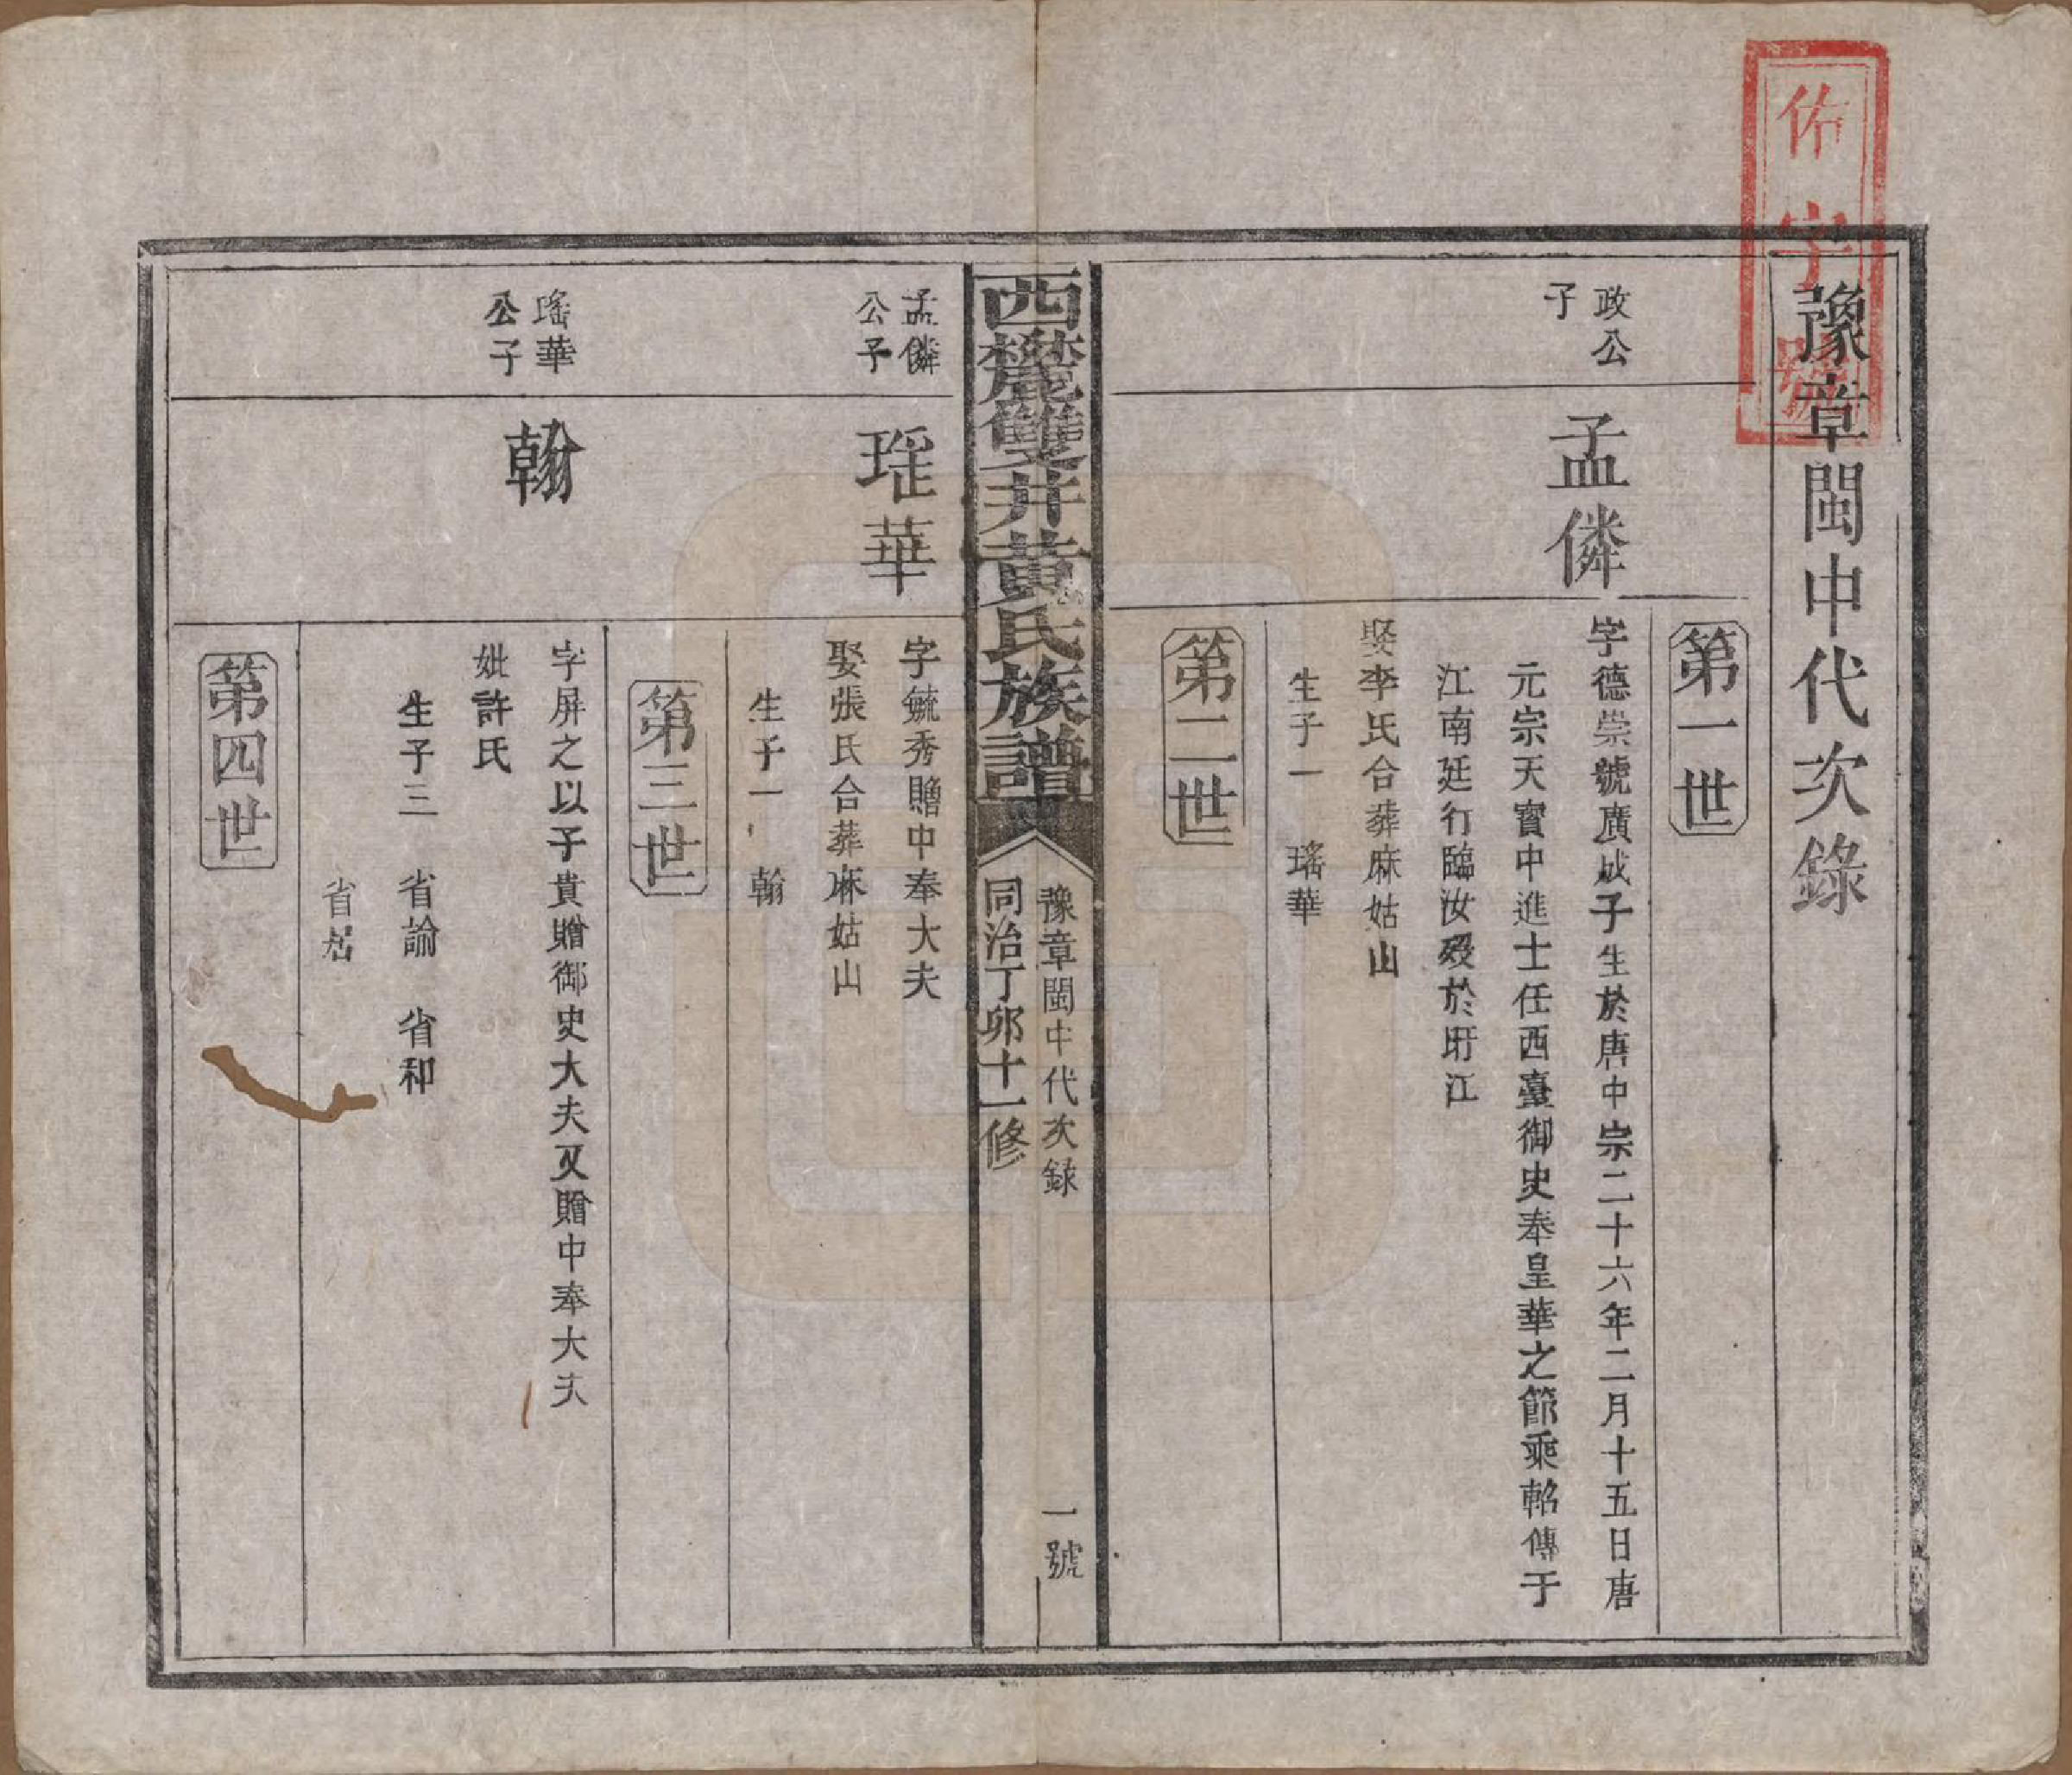 佑字號
豫章閩中代次錄
第一世
政公
子
孟僯
字德崇號廣成子生於唐中宗二十六年二月十五日唐
元宗天寶中進士任西臺御史奉皇華之節乘軺傳于
江南廷行臨汝歿於盱江
娶李氏合葬麻姑山
生子一 瑤華
第二世
西麓雙井黃氏族譜
豫章閩中代次錄
一號
同治丁卯十一修
孟僯
公子
瑤華
字毓秀贈中奉大夫
娶張氏合葬麻姑山
生子一 翰
第三世
瑤華
公子
翰
字屏之以子貴贈御史大夫又贈中奉大夫
妣許氏
生子三 省諭 省和
省
第四世